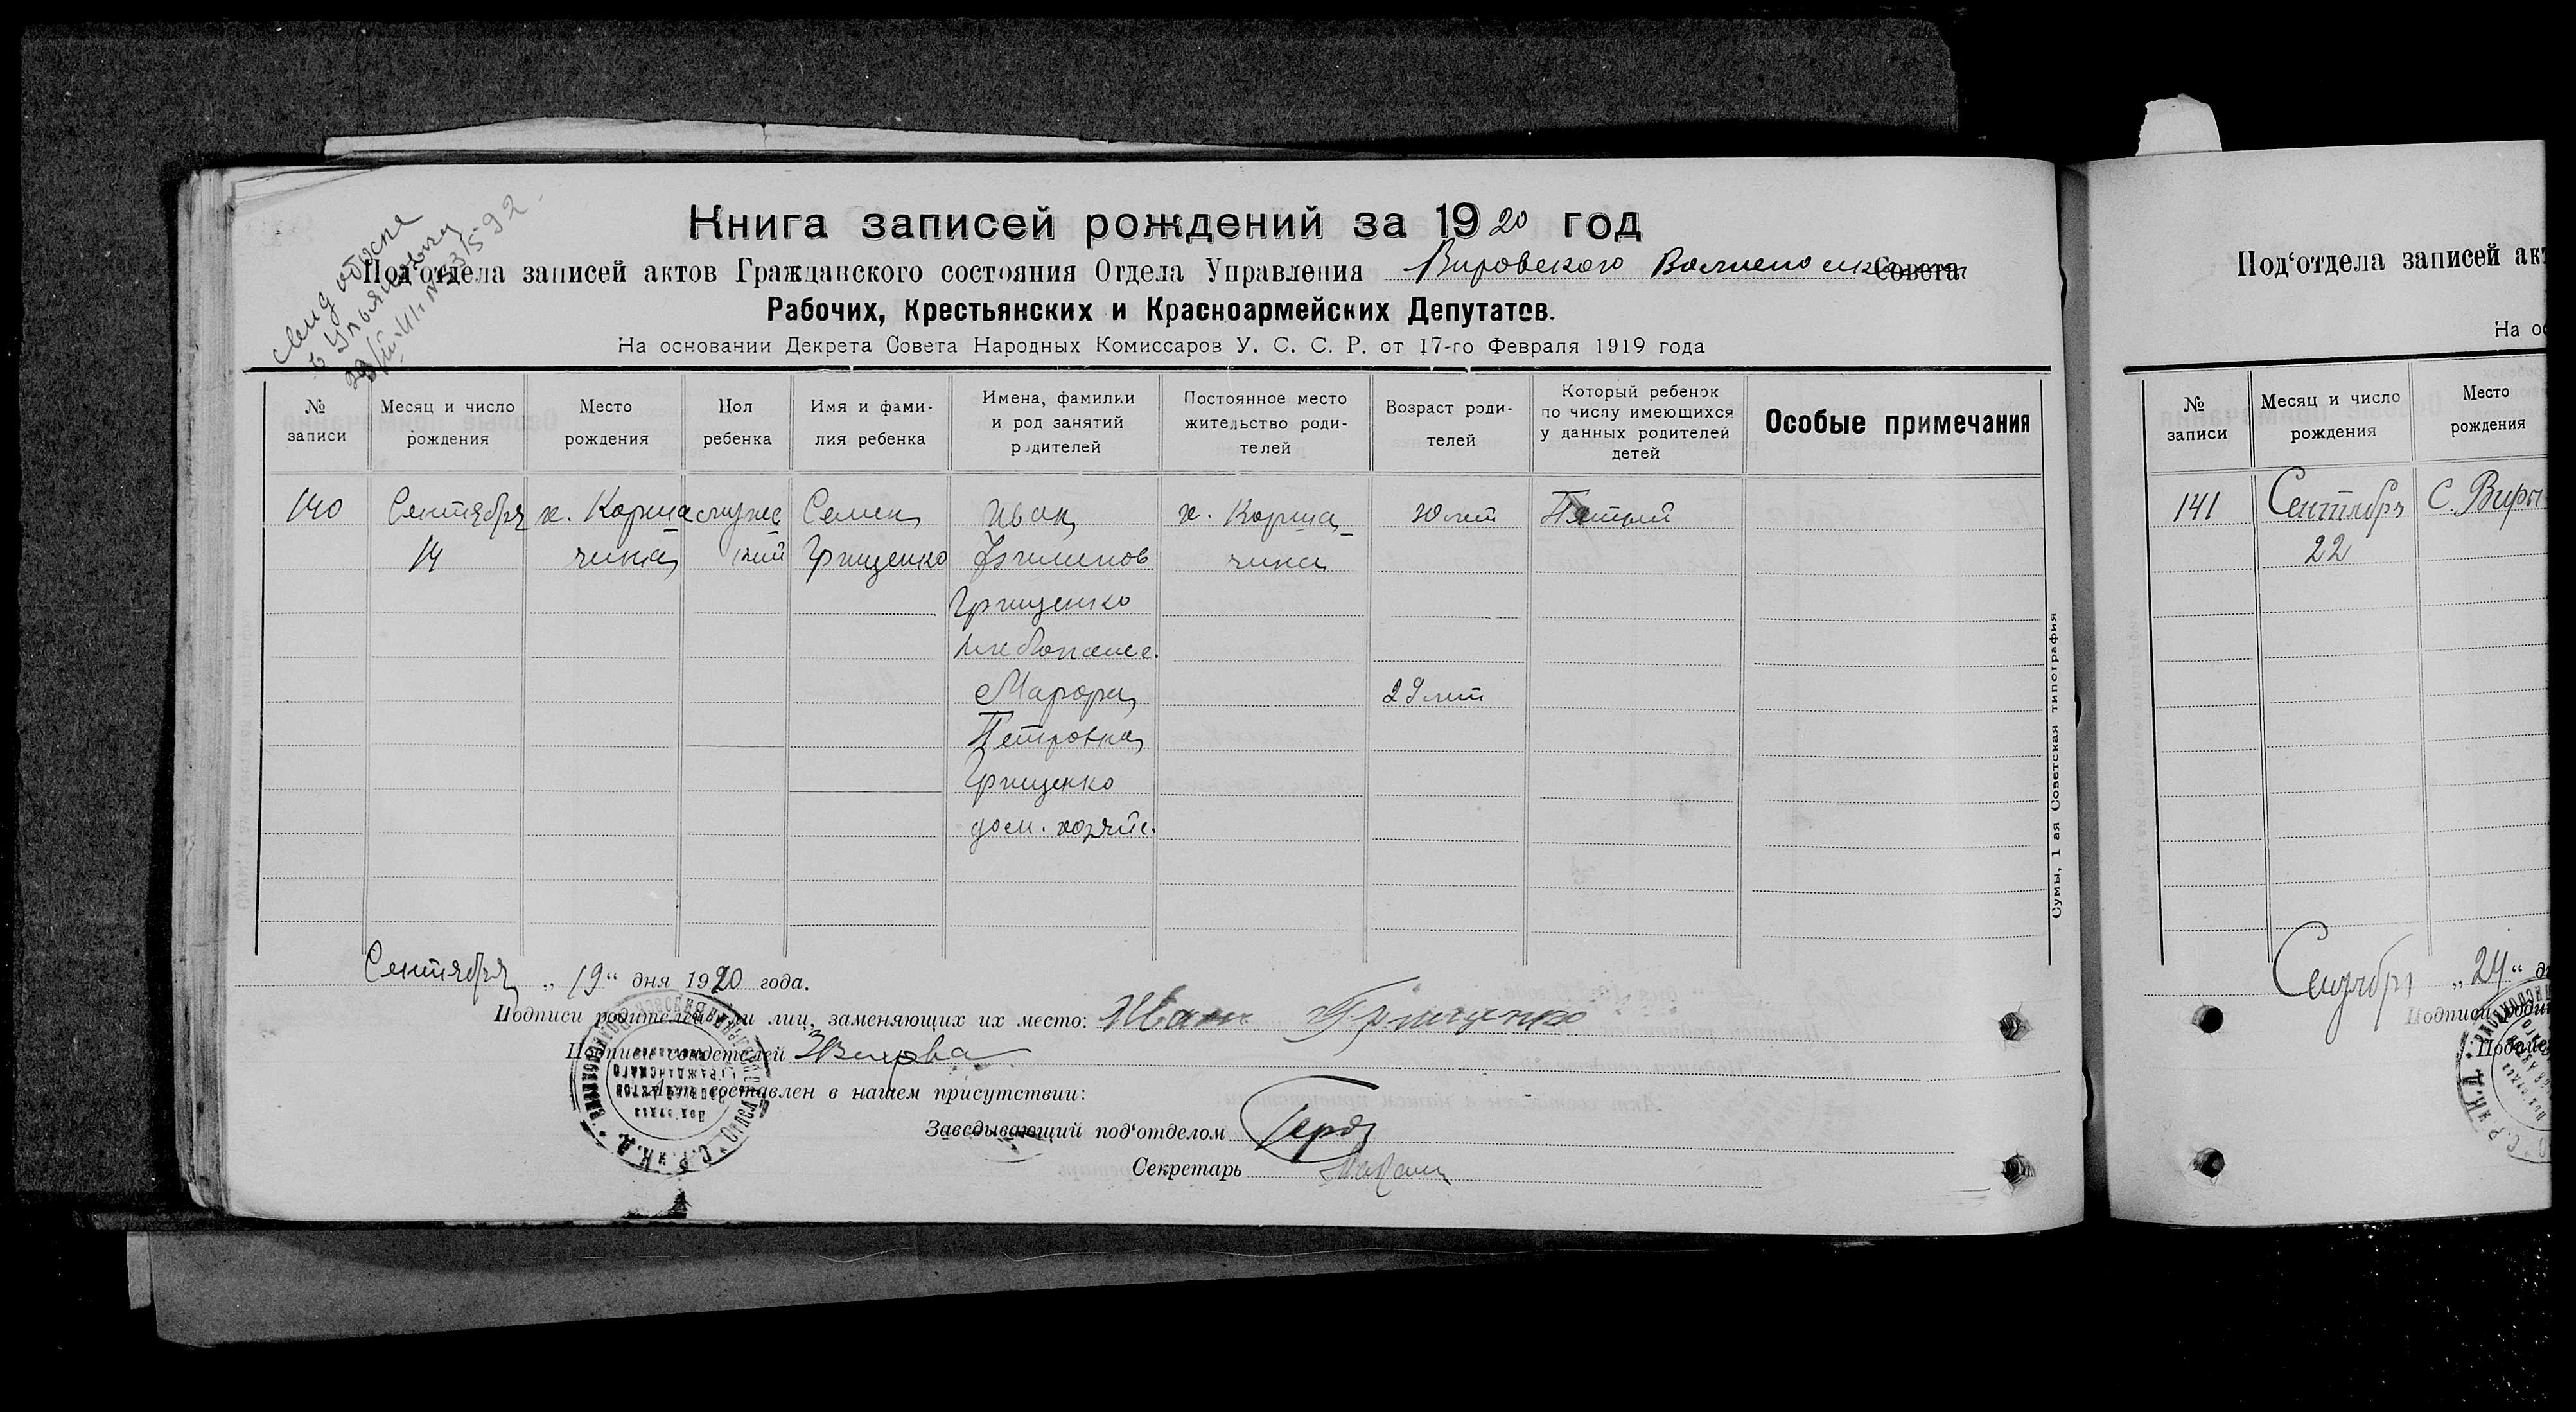 Книга записей рождений за 1920 год
Под'отдела записей актов Гражданского состояния Отдела Управления Вировского Волисполкома Совета
Рабочих, Крестьянских и Красноармейских Депутатов.
На основании Декрета Совета Народных Комиссаров У. С. С. Р. от 17-го Февраля 1919 года
№ записи
Месяц и число рождения
Место рождения
Пол ребенка
Имя и фамилия ребенка
Имена, фамилии и род занятий родителей
Постоянное место жительство родителей
Возраст родителей
Который ребенок по числу имеющихся у данных родителей детей
Особые примечания
140
Сентября
14
х. Корша
чина
мужс
кий
Семен
Грищенко
Иван
Филипов
Грищенко
хлебопашес.
Марфа
Петровна
Грищенко
дом. хозяйс.
х. Корша
чина
30 лет
29 лет
Пятый
Сентября „19“ дня 1920 года.
Подписи родителей или лиц, заменяющих их место: Иван Грищенко
Подписи свидетелей
Акт составлен в нашем присутствии:
Заведывающий под'отделом
Секретарь
Сумы, 1 ая Советская типография
Под'отдела записей акт
На ос
№ записи
Месяц и число рождения
Место рождения
141
Сентября
22
С. Виры
„24“ д
Подписи родит
Подписи